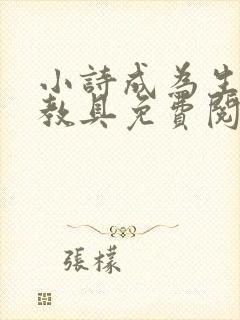 小詩成為生
教具免費閱
張檬